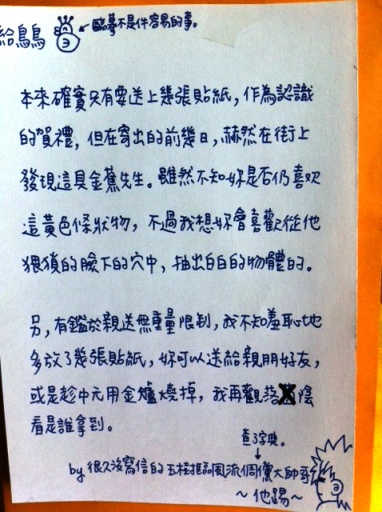 給鳥鳥
←臨摹不是件容易的事。
本來確實只有要送上幾張貼紙，作為認識
的賀禮，但在寄出的前幾日，赫然在街上
發現這具金蕉先生。雖然不知妳是否仍喜歡
這黃色條狀物，不過我想妳會喜歡從他
猥瑣的臉下的穴中，抽出白白的物體的。
另，有鑑於親送無重量限制，我不知羞恥地
多放了幾張貼紙，妳可以送給親朋好友，
或是趁中元用金爐燒掉，我再觀落陰
看是誰拿到。
查了字典。
by 很久沒寫信的五柱擂風流倜儻大帥哥
～他踢～